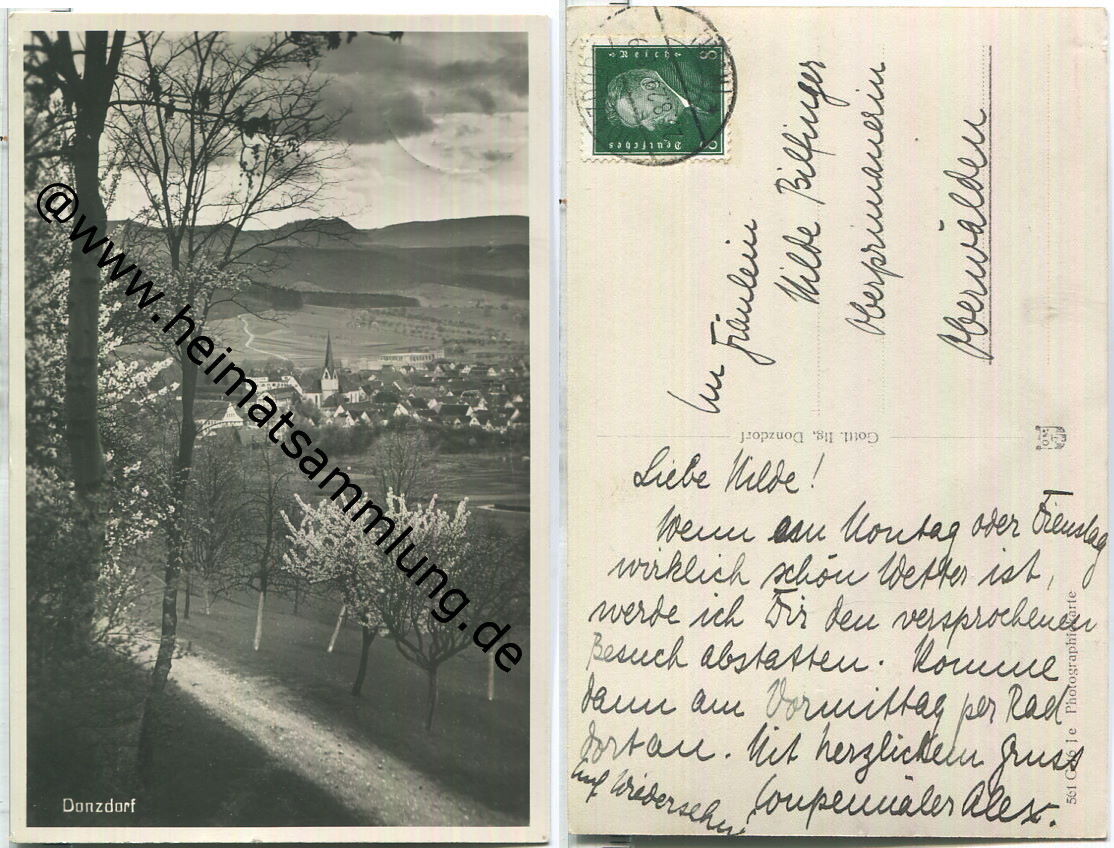 Donzdorf
@www.heimatsammlung.de
Deutsches
Reich
8
8
An Fräulein
Hilde Bilfinger
Oberprimanerin
Oberwälden
Gottl. Ilg, Donzdorf
Liebe Hilde!
Wenn am Montag oder Dienstag
wirklich schön Wetter ist,
werde ich Dir den versprochenen
Besuch abstatten. Komme
dann am Vormittag per Rad
dort an. Mit herzlichem Gruss
Auf Wiedersehn! Conpennäler Alex.
Photographiekarte